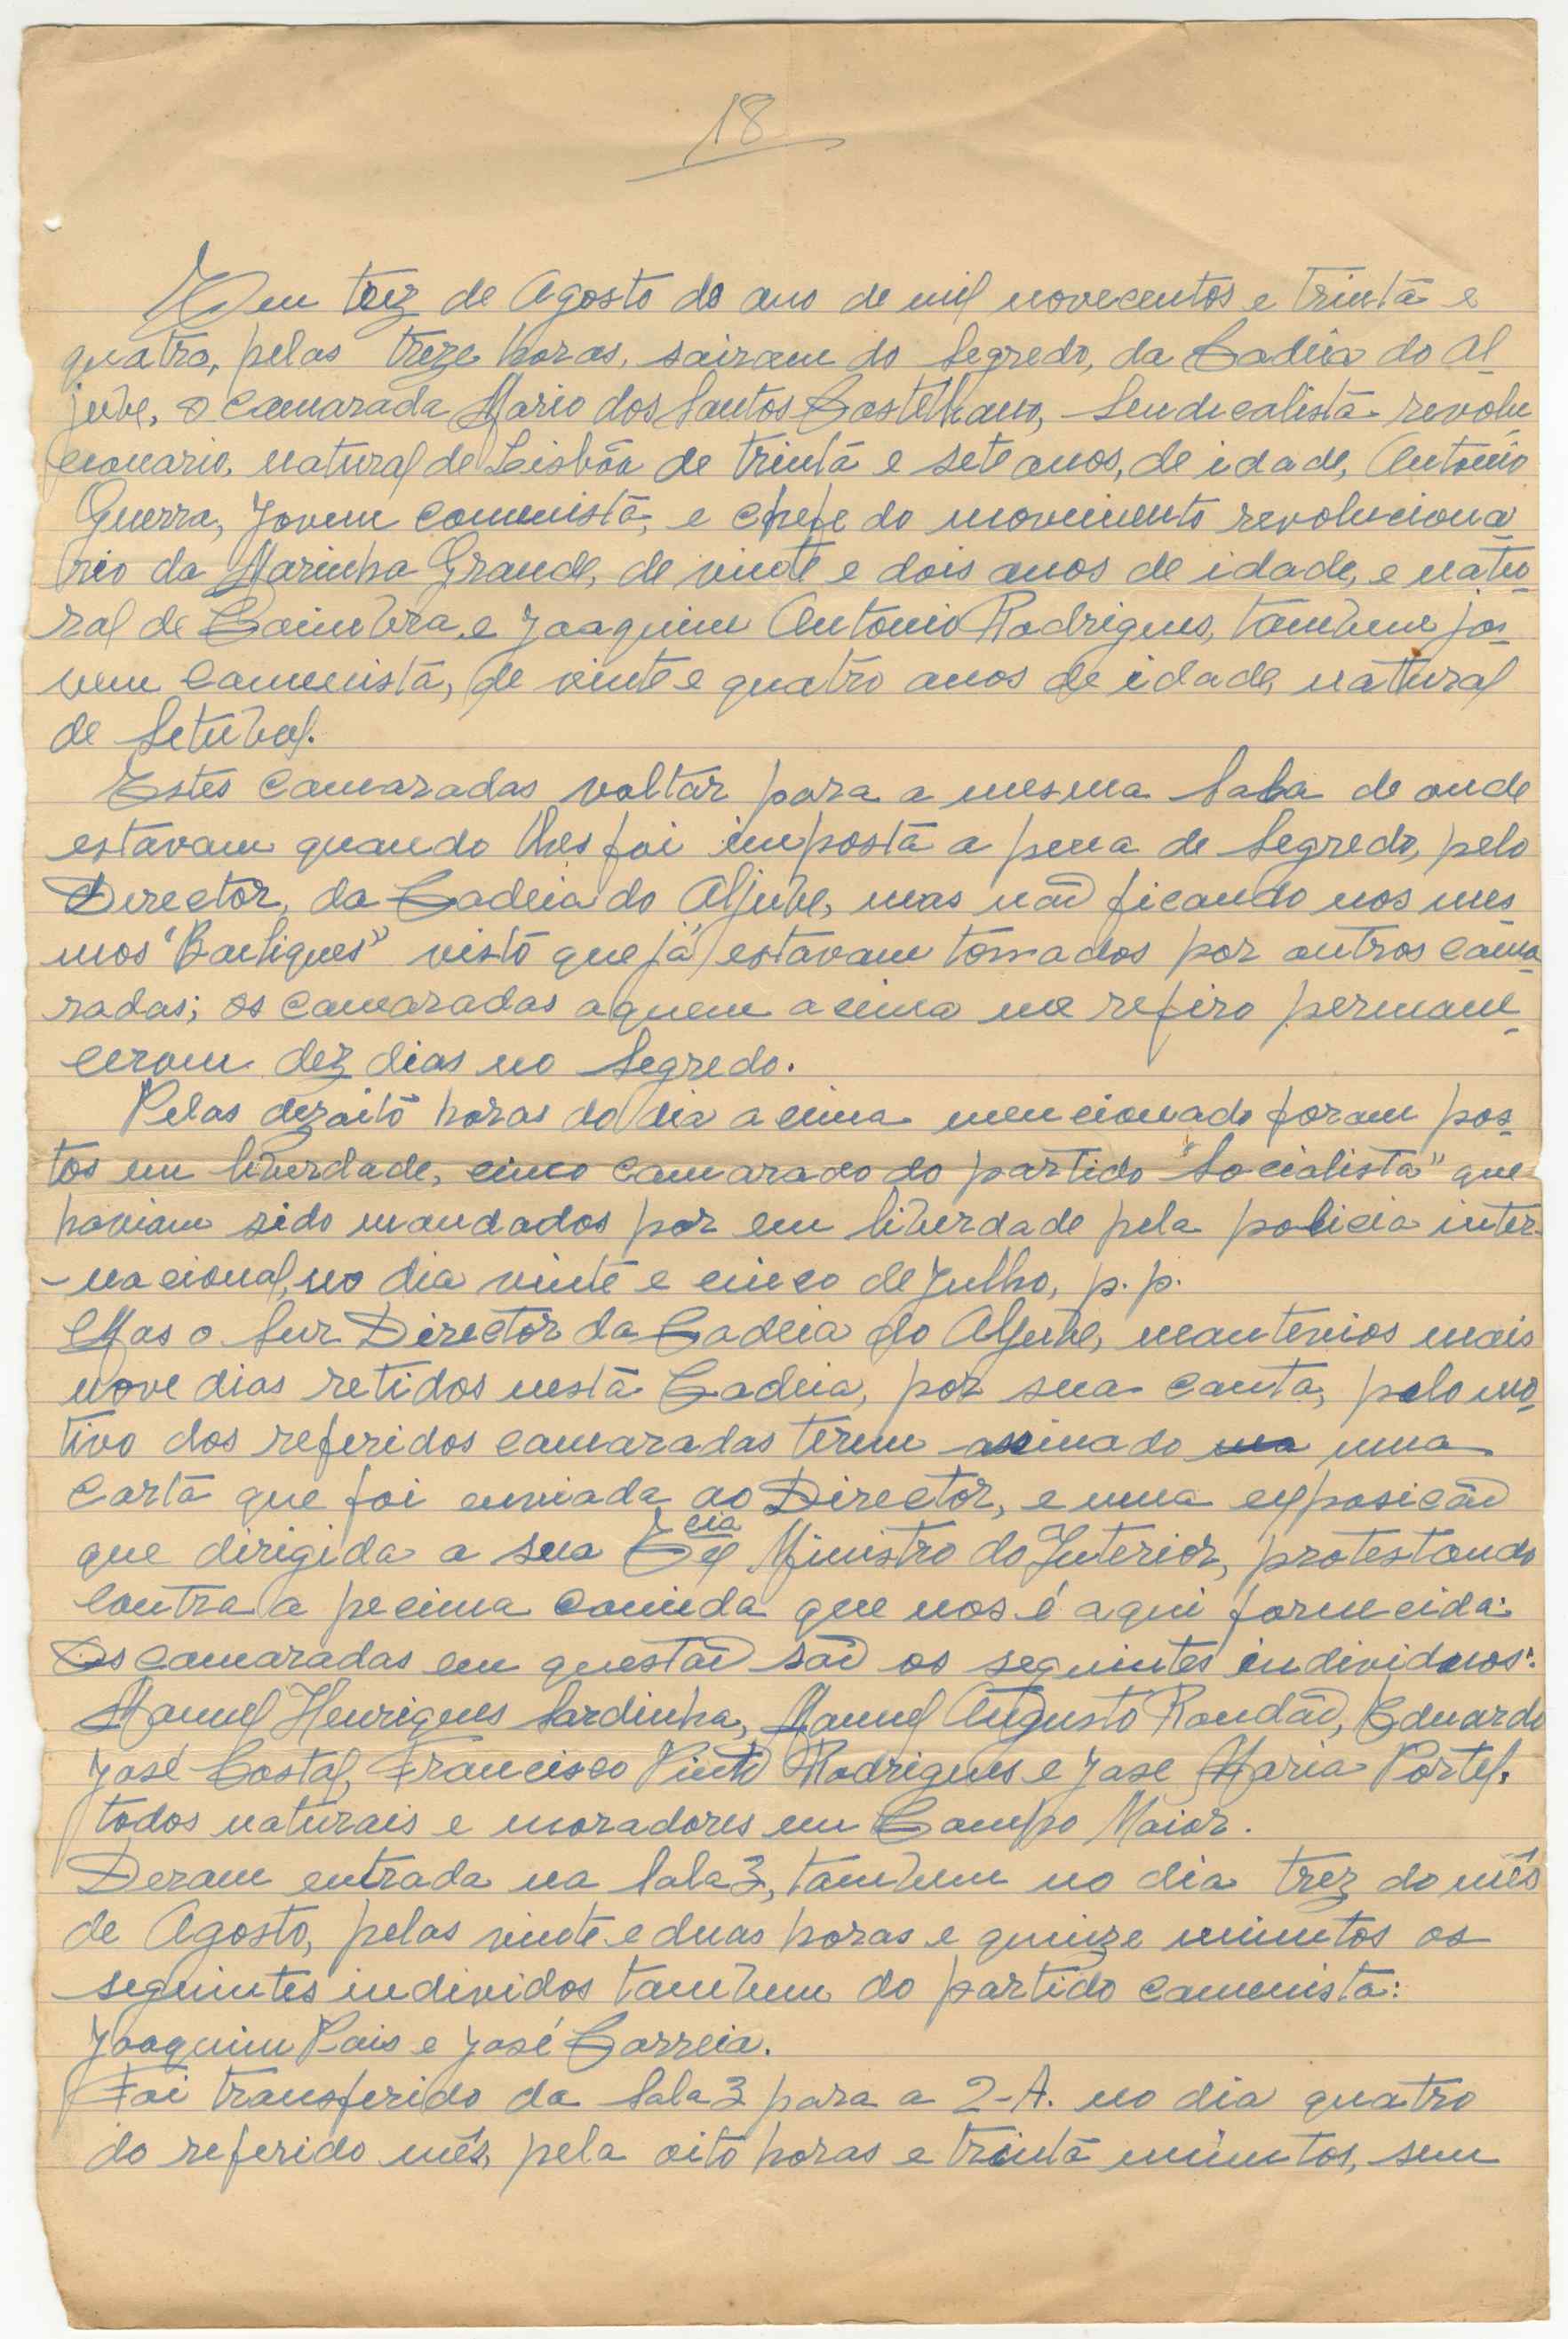 18
Em trez de Agosto do ano de mil novecentos e trinta e
quatro, pelas treze horas, sairam do Segredo, da Cadeia do Al-
jube, o camarada Mario dos Santos Castelhano, Sendicalista revolu-
cionario, natural de Lisbôa de trinta e sete anos, de idade, Antonio
Guerra, Jovem comunista, e chefe do movimento revoluciona-
rio da Marinha Grande, de vinte e dois anos de idade, e natu-
ral de Coimbra, e Joaquim Antonio Rodrigues, tambem jo-
vem comunista, de vinte e quatro anos de idade, natural
de Setubal.
Estes camaradas voltar para a mesma Sala de onde
estavam quando lhes foi imposta a pena de Segredo, pelo
Director, da Cadeia do Aljube, mas não ficando nos mes-
mos "Bailiques" visto que já estavam tomados por outros cama-
radas; os camaradas aquem acima me refiro permane-
ceram dez dias no Segredo.
Pelas dezaito horas do dia acima mencionado foram pos-
tos em liberdade, cinco camarados do partido "Socialista" que
haviam sido mandados por em liberdade pela policia inter-
-nacional, no dia vinte e cinco de Julho, p. p.
Mas o Snr Director da Cadeia do Aljube, mantevios mais
nove dias retidos nesta Cadeia, por sua conta, pelo mo-
tivo dos referidos camaradas terem assinado ma uma
carta que foi enviada ao Director, e uma exposicão
que dirigida a sua Excia Ministro do Interior, protestando
contra a pecima comida que nos é aqui forneida:
Os camaradas em questão são os seguintes individuos:
Manuel Henriques Sardinha, Manuel Augusto Rondão, Eduardo
José Costa, Francisco Pinto Rodrigues e José Maria Portel,
todos naturais e moradores em Campo Maior.
Deram entrada na Sala 3, tambem no dia trez do mês
de Agosto, pelas vinte e duas horas e quinze minutos os
seguintes individos tambem do partido comunista:
Joaquim Pais e José Correia.
Foi transferido da Sala 3 para a 2-A. no dia quatro
do referido mês, pela oito horas e trinta minutos, sem